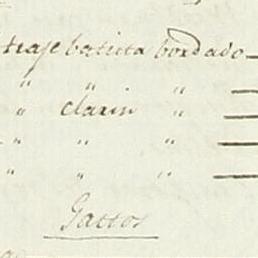 traje batista bordado
" " "
" clarin "
" " "
" " "
Gastos